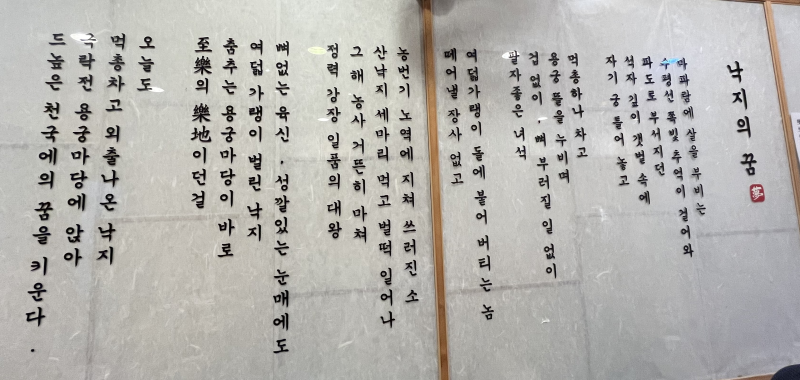 낙지의 꿈
夢
마파람에 살을 부비는
수평선 록빛 추억이 걸어와
파도로 부서지던
석자 깊이 갯벌 속에
자기 궁 틀어 놓고
먹총하나 차고
용궁 뜰을 누비며
겁 없이 , 뼈 부러질 일 없이
팔자 좋은 녀석
여덟가랭이 돌에 붙어 버티는 놈
떼어낼 장사 없고
농번기 노역에 지쳐 쓰러진 소
산낙지 세마리 먹고 벌떡 일어나
그 해 농사 거뜬히 마쳐
정력 강장 일품의 대왕
뼈없는 육신 , 성깔있는 눈매에도
여덟 가랭이 벌린 낙지
춤추는 용궁마당이 바로
至樂의 樂地이던걸
오늘도
먹총차고 외출나온 낙지
극락전 용궁마당에 앉아
드높은 천국에의 꿈을 키운다 .